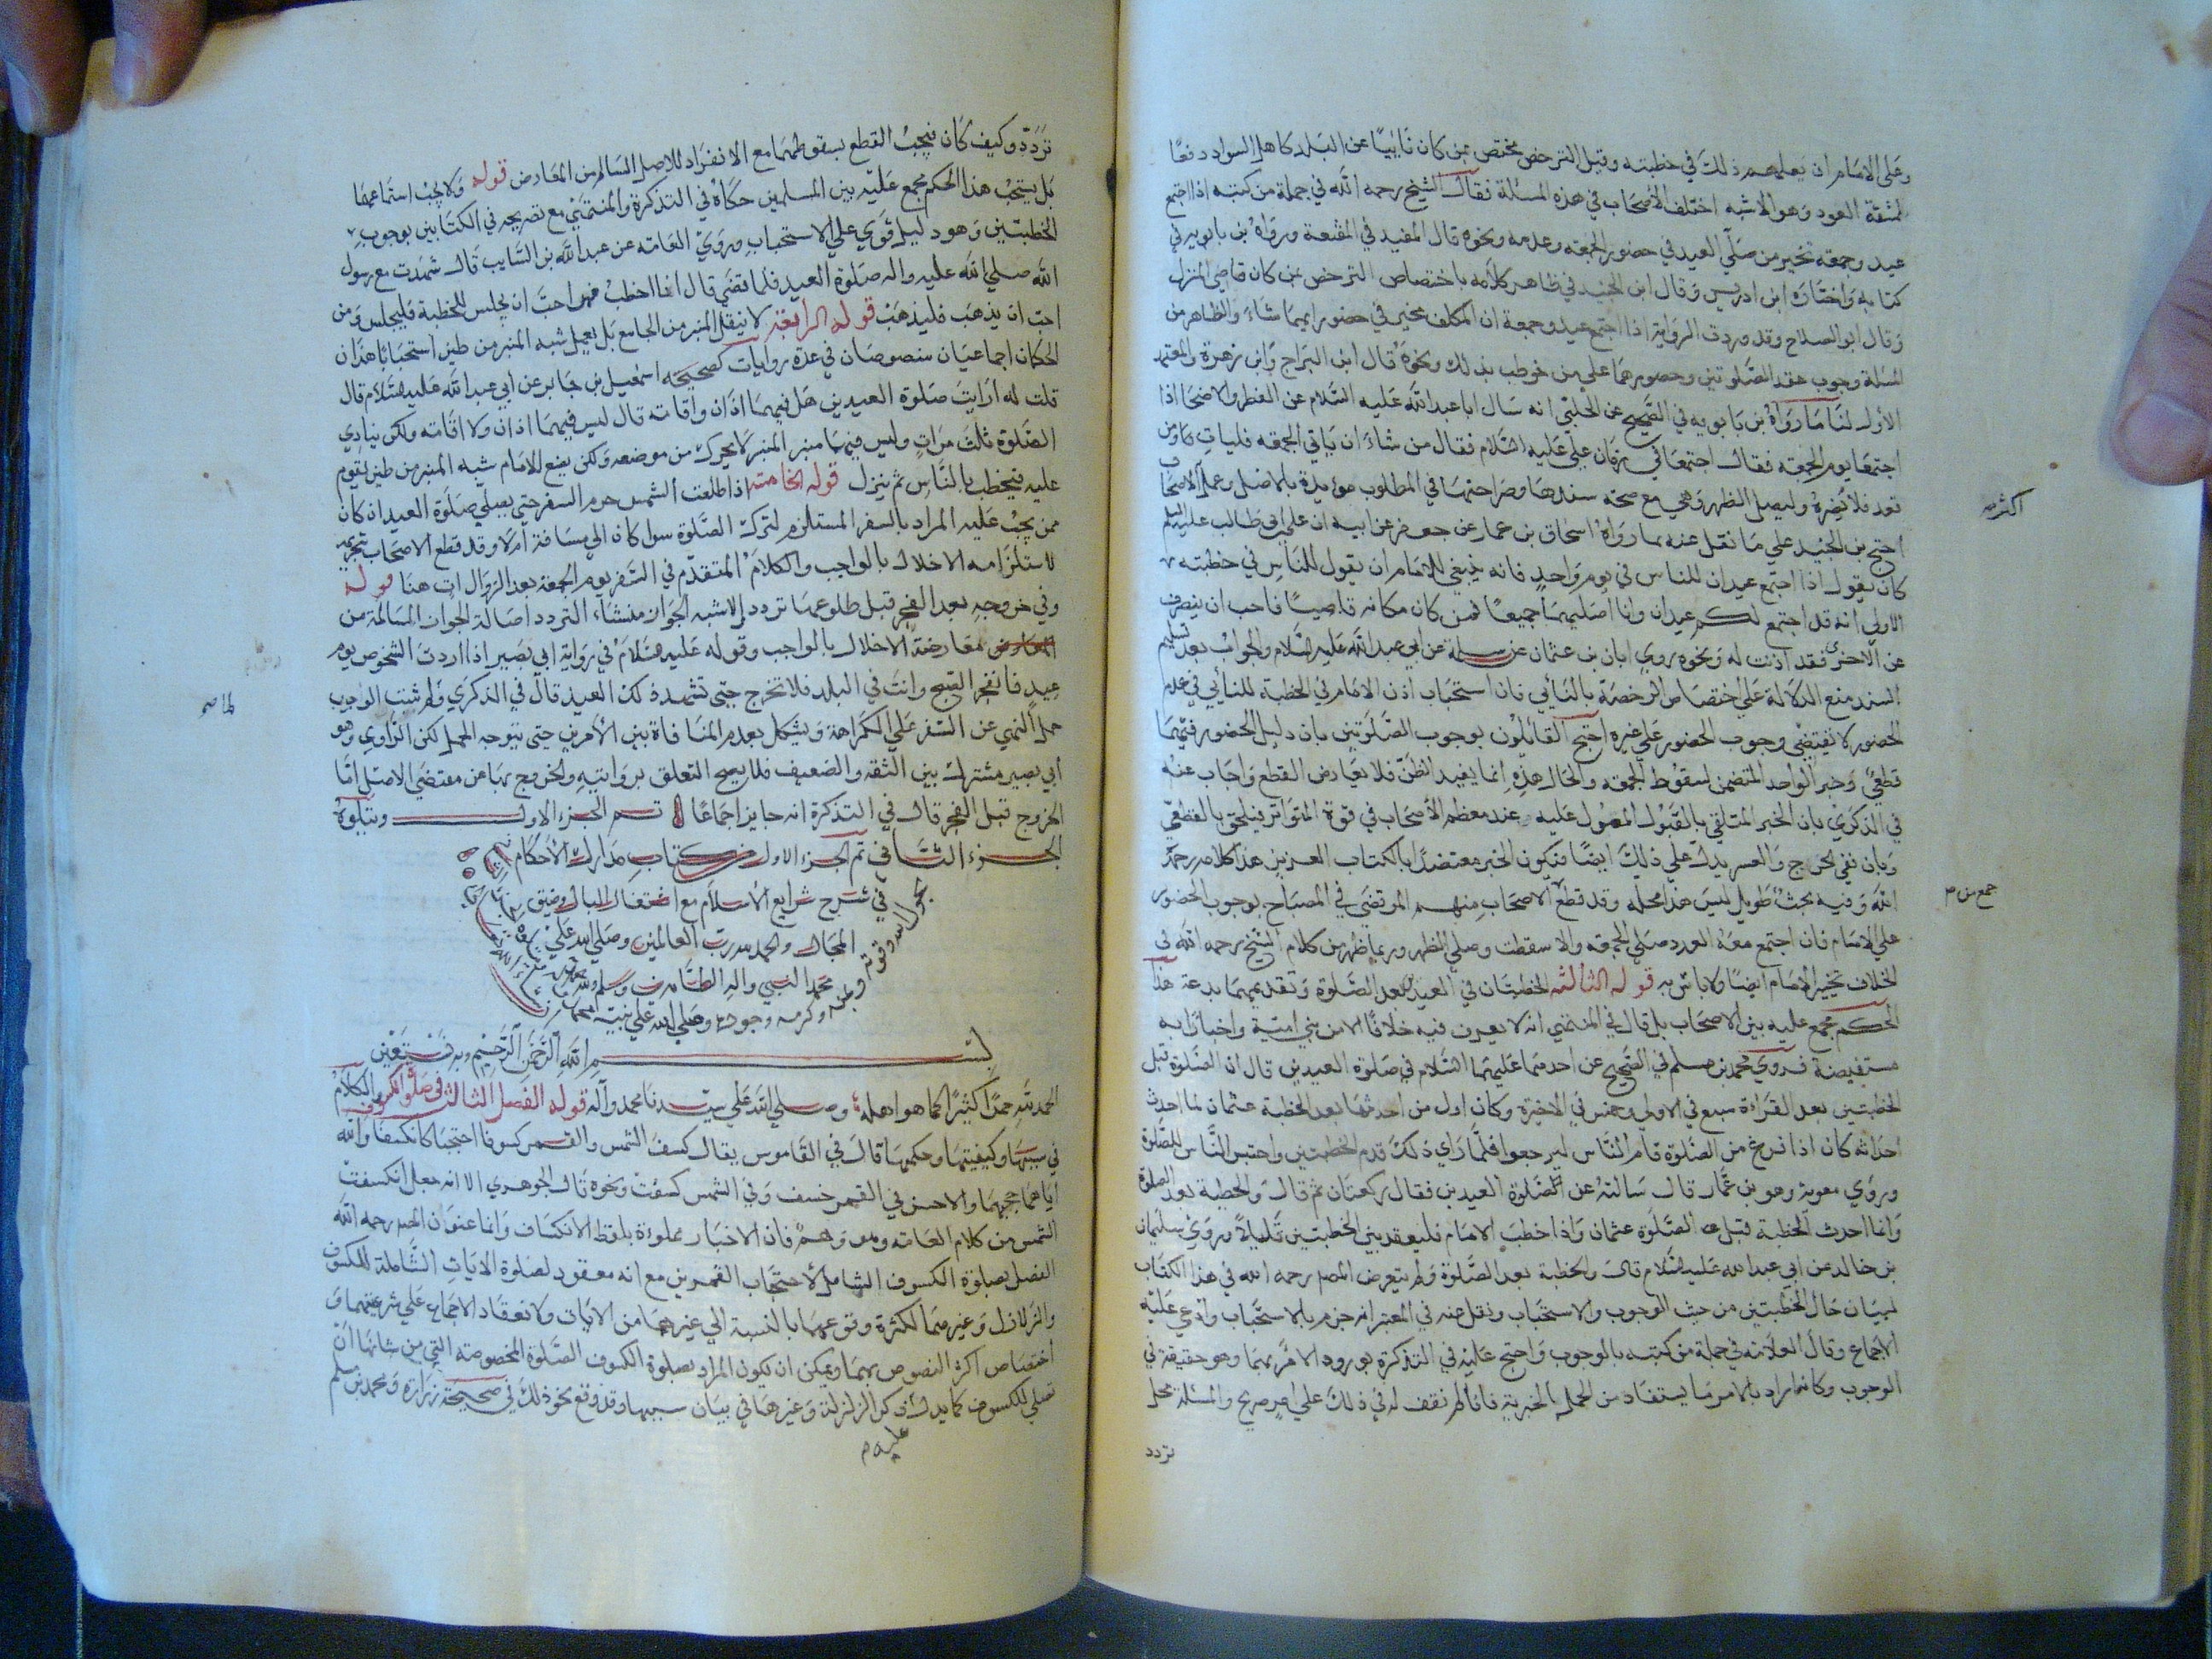 وعلى الامام ان يعلمهم ذلك في خطبته وقيل الترخص مختص بمن كان نائيا عن البلد كاهل السواد دفعا
لمشقة العود وهو الاشبه اختلف الاصحاب في هذه المسئلة فقال الشيخ رحمه الله في جملة من كتبه اذا اجتمع
عيد وجمعة تخير من صلى العيد في حضور الجمعة وعدمه ونحوه قال المفيد في المقنعة ورواه بن بابويه في
كتابه واختاره ابن ادريس وقال ابن الجنيد في ظاهر كلامه باختصاص الترخص بمن كان قاصي المنزل
وقال ابو الصلاح وقد وردت الرواية اذا اجتمع عيد وجمعة ان المكلف مخير في حضور ايهما شاء والظاهر من
المسئلة وجوب عقد الصلوتين وحضورهما على من خوطب بذلك ونحوه قال ابن البراج وابن زهرة والمعتمد
الاول لنا ما رواه بن بابويه في الصحيح عن الحلبي انه سال ابا عبد الله عليه السلام عن الفطر والاضحى اذا
اجتمعا يوم الجمعة فقال اجتمعا في زمان علي عليه السلام فقال من شاء ان ياتي الجمعة فليات ومن
قعد فلا يضره وليصل الظهر وهي مع صحة سندها وصراحتها في المطلوب مؤيدة بالاصل وعمل الاصحاب
اكثر
احتج بن الجنيد على ما نقل عنه بما رواه اسحاق بن عمار عن جعفر عن ابيه ان علي بن ابي طالب عليه السلم
كان يقول اذا اجتمع عيدان للناس في يوم واحد فانه ينبغي للامام ان يقول للناس في خطبته
الاولى انه قد اجتمع لكم عيدان وانا اصليهما جميعا فمن كان مكانه قاصيا فاحب ان ينصرف
عن الاخرى فقد اذنت له ونحوه روى ابان بن عثمان عن سلمة عن ابي عبد الله عليه السلام والجواب بعد تسليم
السند منع الدلالة على اختصاص الرخصة بالنائي فان استحباب اذن الامام في الخطبة للنائي في عدم
الحضور لا يقتضي وجوب الحضور على غيره احتج القائلون بوجوب الصلوتين بان دليل الحضور فيهما
قطعي وخبر الواحد المتضمن لسقوط الجمعة والحال هذه انما يفيد الظن فلا يعارض القطع واجاب عنه
في الذكرى بان الخبر المتلقي بالقبول المعمول عليه عند معظم الاصحاب في قوة المتواتر فيلحق بالقطعي
وبان نفي الحرج والعسر يدل على ذلك ايضا فيكون الخبر معتضدا بالكتاب العزيز هذا كلامه رحمه
الله وفيه بحث طويل ليس هذا محله وقد قطع الاصحاب منهم المرتضى في المصباح بوجوب الحضور
جمع من م
على الامام فان اجتمع معه العدد صلى الجمعة والا سقطت وصلى الظهر وربما ظهر من كلام الشيخ رحمه الله في
الخلاف تخيير الامام ايضا ولا باس به قوله الثالثة الخطبتان في العيدين بعد الصلوة وتقديمهما بدعة هذا
الحكم مجمع عليه بين الاصحاب بل قال في المنتهى انه لا يعرف فيه خلافا الا من بني امية واخبارنا به
مستفيضة فروى محمد بن مسلم في الصحيح عن احدهما عليهما السلام في صلوة العيدين قال ان الصلوة قبل
الخطبتين بعد القراءة سبع في الاولى وخمس في الاخيرة وكان اول من احدثها بعد الخطبة عثمان لما احدث
احداثه كان اذا فرغ من الصلوة قام الناس ليرجعوا فلما راى ذلك قدم الخطبتين واحتبس الناس للصلوة
وروى معوية وهو بن عمار قال سالته عن صلوة العيدين فقال ركعتان ثم قال والخطبة بعد الصلوة
وانما احدث الخطبة قبل الصلوة عثمان واذا خطب الامام فليقعد بين الخطبتين قليلا وروى سليمان
بن خالد عن ابي عبد الله عليه السلام قال والخطبة بعد الصلوة ولم يتعرض المصر رحمه الله في هذا الكتاب
لبيان حال الخطبتين من حيث الوجوب والاستحباب ونقل عنه في المعتبر انه جزم بالاستحباب وادعى عليه
الاجماع وقال العلامة في جملة من كتبه بالوجوب واحتج عليه في التذكرة بورود الامر بهما وهو حقيقة في
الوجوب وكانه اراد بالامر ما يستفاد من الجملة الخبرية فانا لم نقف له في ذلك على امر صريح والمسئلة محل
تردد
تردد وكيف كان فيجب القطع بسقوطهما مع الانفراد للاصل السالم من المعارض قوله ولا يجب استماعهما
بل يستحب هذا الحكم مجمع عليه بين المسلمين حكاه في التذكرة والمنتهى مع تصريحه في الكتابين بوجوب
الخطبتين وهو دليل قوي على الاستحباب وروى العامة عن عبد الله بن السايب قال شهدت مع رسول
الله صلى الله عليه واله صلوة العيد فلما قضى قال انما اخطب فمن احب ان يجلس للخطبة فليجلس ومن
احب ان يذهب فليذهب قوله الرابعة لا ينقل المنبر من الجامع بل يعمل شبه المنبر من طين استحبابا هذان
الحكمان اجماعيان منصوصان في عدة روايات كصحيحة اسمعيل بن جابر عن ابي عبد الله عليه السلام قال
قلت له ارايت صلوة العيدين هل فيهما اذان واقامة قال ليس فيهما اذان ولا اقامة ولكن ينادى
الصلوة ثلث مرات وليس فيهما منبر المنبر لا يحرك من موضعه ولكن يصنع للامام شبه المنبر من طين يقوم
عليه فيخطب بالناس ثم ينزل قوله الخامسة اذا طلعت الشمس حرم السفر حتى يصلي صلوة العيد ان كان
ممن يجب عليه المراد بالسفر المستلزم لترك الصلوة سوا كان الى مسافة ام لا وقد قطع الاصحاب بتحريمه
لاستلزامه الاخلال بالواجب والكلام المتقدم في السفر يوم الجمعة بعد الزوال ات هنا قوله
وفي خروجه بعد الفجر قبل طلوعها تردد الاشبه الجواز منشاء التردد اصالة الجواز السالمة من
معارضة الاخلال بالواجب وقوله عليه السلام في رواية ابي بصير اذا اردت الشخوص يوم
عيد فانفجر الصبح وانت في البلد فلا تخرج حتى تشهد ذلك العيد قال في الذكرى ولم يثبت الوجوب
لما صح
حمل النهي عن السفر على الكراهة ويشكل بعدم المنافاة بين الامرين حتى يتوجه الحمل لكن الراوي وهو
ابي بصير مشترك بين الثقة والضعيف فلا يصح التعلق بروايته والخروج بها عن مقتضى الاصل اما
الخروج قبل الفجر قال في التذكرة انه جايز اجماعا تم الجزء الاول ويتلوه
الجزء الثاني تم الجزء الاول من كتاب مدارك الاحكام
في شرح شرايع الاسلام مع اشتغال البال وضيق
المجال والحمد لله رب العالمين وصلى الله على
محمد النبي واله الطاهرين وسلم
بحول الله وقوته ومنه وكرمه وجوده وصلى الله على نبيه محمد
بسم الله الرحمن الرحيم وبه نستعين
الحمد لله حمدا كثيرا كما هو اهله وصلى الله على سيدنا محمد وآله قوله الفصل الثالث في صلوة الكسوف والكلام
في سببها وكيفيتها وحكمها قال في القاموس يقال كسف الشمس والقمر كسوفا احتجبا كانكسفا والله
اياهما حجبهما والاحسن في القمر خسف وفي الشمس كسفت ونحوه قال الجوهري الا انه جعل انكسفت
الشمس من كلام العامة وهو وهم فان الاخبار مملوءة بلفظ الانكساف وانما عنون المص رحمه الله
الفصل بصلوة الكسوف الشامل لاحتجاب القمرين مع انه معقود لصلوة الايات الشاملة للكسوف
والزلازل وغيرهما لكثرة وقوعهما بالنسبة الى غيرهما من الايات ولانعقاد الاجماع على شرعيتهما و
اختصاص اكثر النصوص بهما ويمكن ان يكون المراد بصلوة الكسوف الصلوة المخصوصة التي من شانها ان
تصلى للكسوف كما يدل ذكر الزلزلة وغيرها في بيان سببها وقد وقع نحو ذلك في صحيحة زرارة ومحمد بن مسلم
عليه م